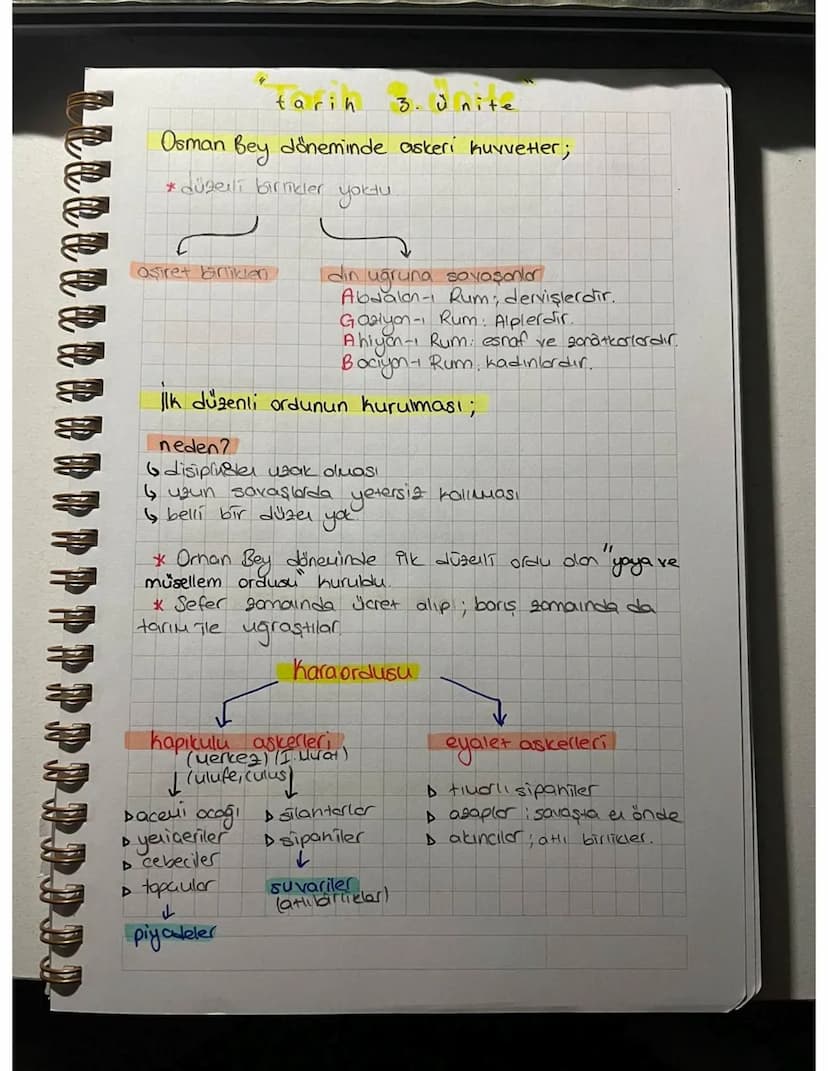 "Tarih 3. Ünite"
tarih 3. ünite
Osman Bey döneminde askeri kuvvetler;
* düzenli birlikler yoktu
aşiret birlikleri
din uğruna savaşanlar
Abdalan-ı Rum; dervişlerdir.
Gaziyan-ı Rum: Alplerdir.
Ahiyan-ı Rum: esnaf ve sanatkarlardır.
Bacıyan-ı Rum: kadınlardır.
İlk düzenli ordunun kurulması;
neden?
↳ disiplinden uzak olması
↳ uzun savaşlarda yetersiz kalınması
↳ belli bir düzen yok
* Orhan Bey döneminde ilk düzenli ordu olan "yaya ve
müsellem ordusu" kuruldu.
* Sefer zamanında ücret alıp; barış zamanında da
tarım ile uğraştılar.
kara ordusu
kapıkulu askerleri
(merkez) (I. Murat)
(ulufe, culus)
▹ acemi ocağı
▹ yeniçeriler
▹ cebeciler
▹ topçular
piyadeler
▹ silahtarlar
▹ sipahiler
süvariler
(atlı birlikler)
eyalet askerleri
▹ tımarlı sipahiler
▹ azaplar: savaşta en önde
▹ akıncılar; atlı birlikler.